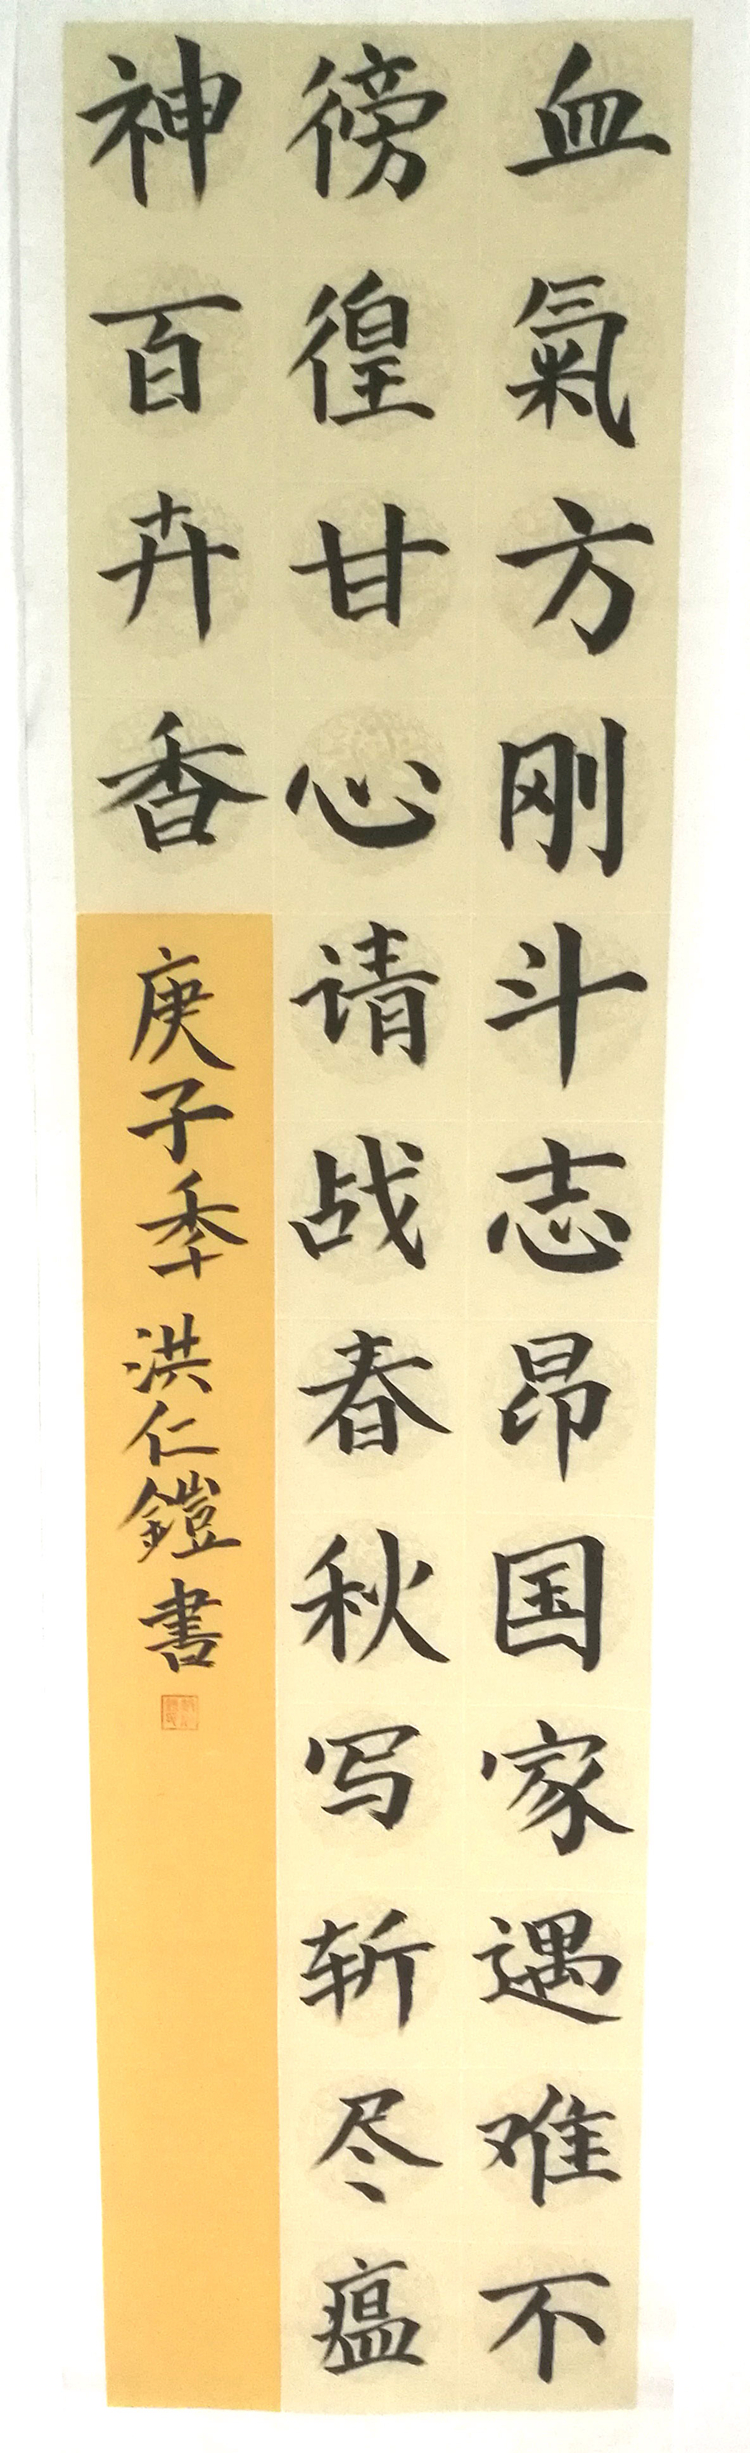 血氣方刚斗志昂国家遇难不
徬徨甘心请战春秋写斩尽瘟
神百卉香
庚子季洪仁鎧書